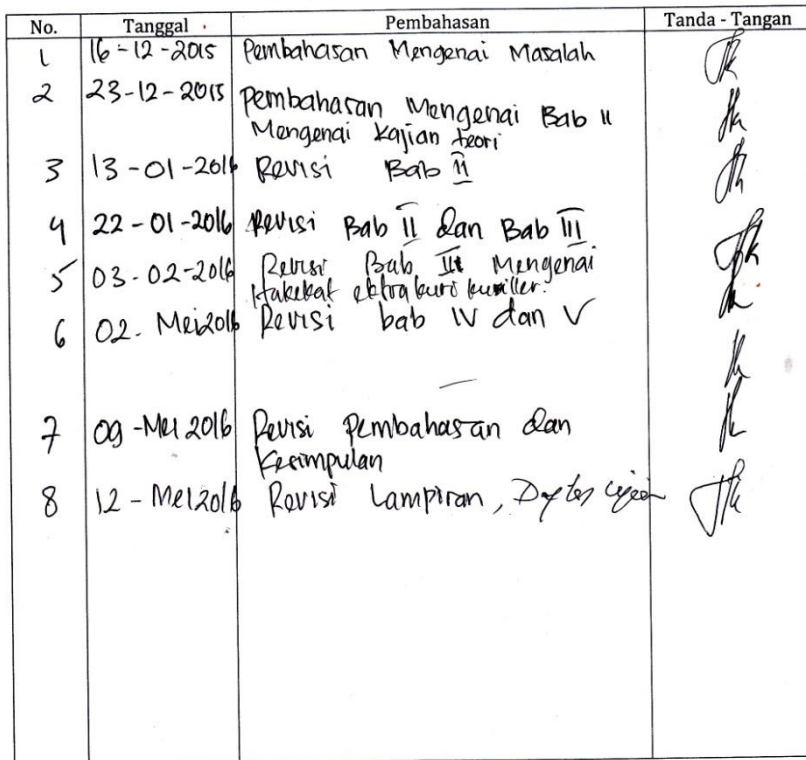 No. Tanggal Pembahasan Tanda - Tangan
1 16-12-2015 Pembahasan Mengenai Masalah
2 23-12-2015 Pembahasan Mengenai Bab II
Mengenai Kajian teori
3 13-01-2016 Revisi Bab II
4 22-01-2016 Revisi Bab II dan Bab III
5 03-02-2016 Revisi Bab III Mengenai
Hakekat
6 02-Mei 2016 Revisi bab IV dan V
7 09-Mei 2016 Revisi Pembahasan dan
Kesimpulan
8 12-Mei 2016 Revisi Lampiran,